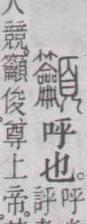 籲呼也。呼
競籲俊尊上帝。